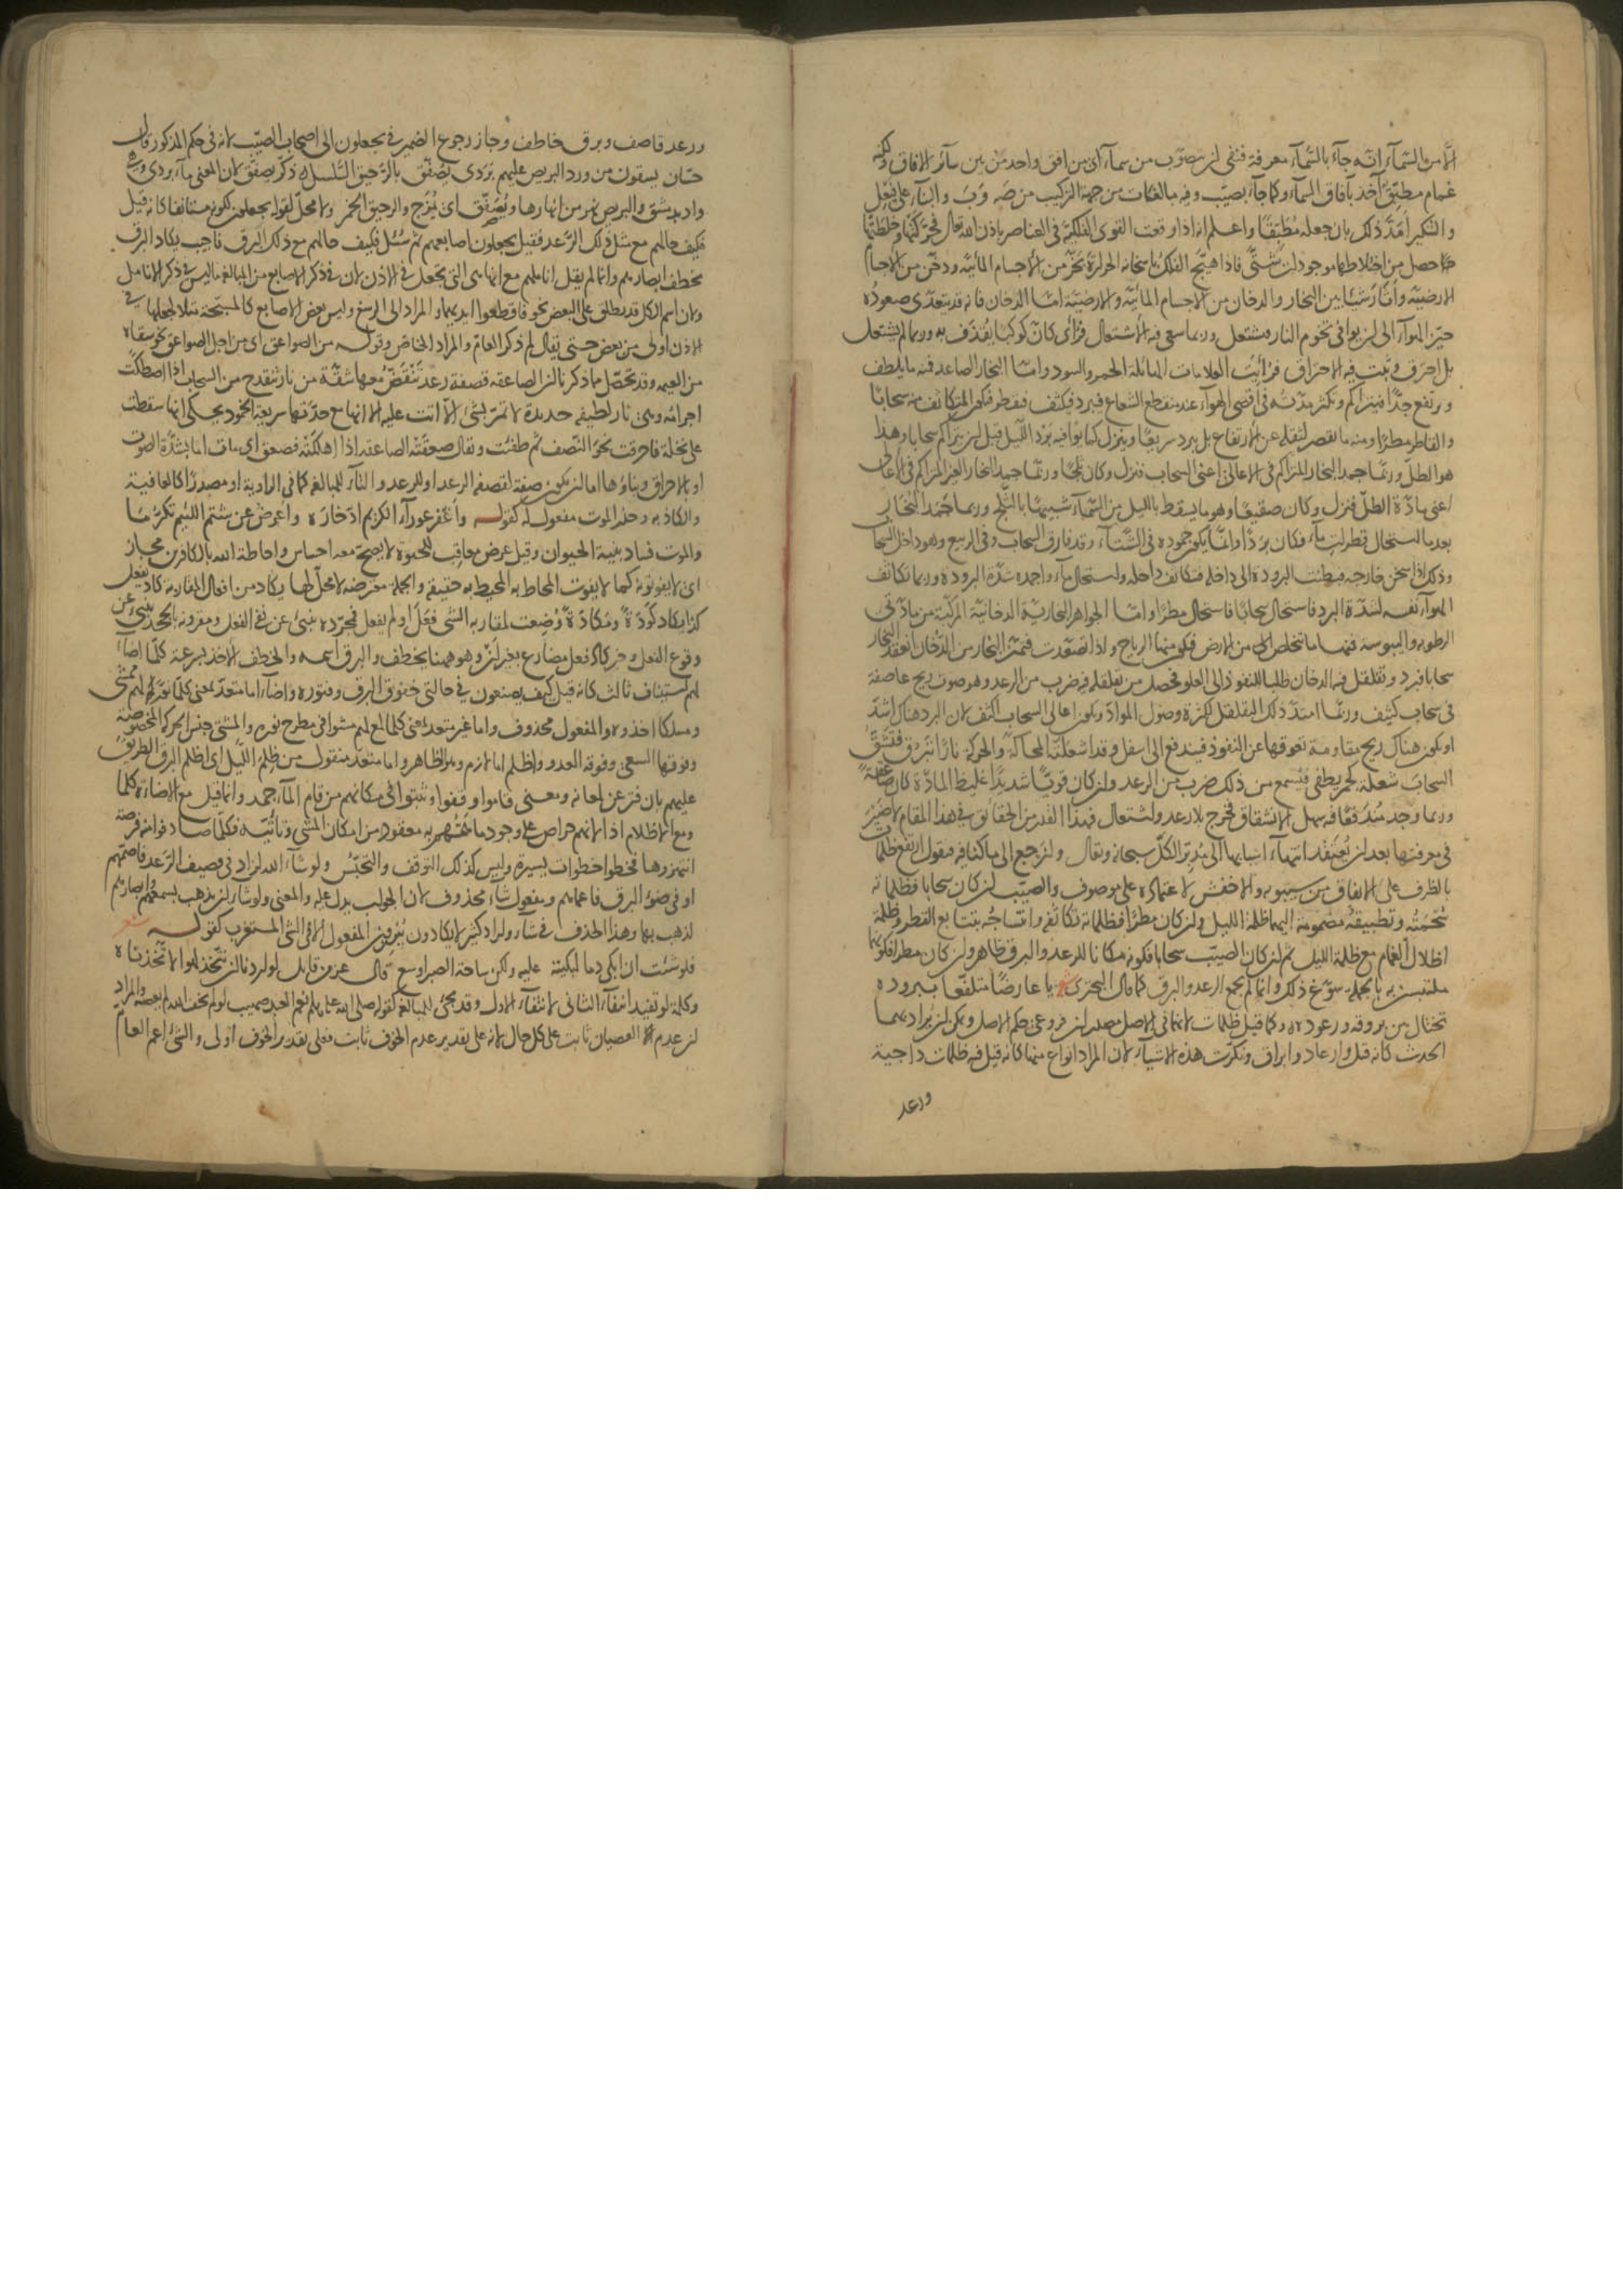 الا من السماء انه جاء بالسماء معرفة فنفى ان يتصوب من سماء اى من افق واحد من بين سائر الافاق ولكنه
غمام مطبق آخذ بآفاق السماء وكما جاء بصيب وفيه مبالغات من جهة التركيب من صَ وَبَ والبناء على فيعل
والتنكير امدّ ذلك بان جعله مُطبقًا واعلم انه اذا وقعت القوى الفلكية فى العناصر باذن الله تعالى فحركتها وخلطتها
حصل من اختلاطها موجودات شتى فاذا هيّج الفلك باسخانه الحرارة بخّر من الاجسام المائية ودخّن من الاجسام
الارضية وأثار شيئا بين البخار والدخان من الاجسام المائية والارضية اما الدخان فانه قد يتعدى صعوده
حيز الهواء الى ان يوافى تخوم النار فيشتعل وربما سعى فيه الاشتعال فرأى كان كوكبا يُقذف به وربما لم يشتعل
بل احترق وثبت فيه الاحتراق فرأيت العلامات الهائلة الحمر والسود واما البخار الصاعد فمنه ما يلطف
ويرتفع جدًا فيتراكم ويكثر مدته فى اقصى الهواء عند منقطع الشعاع فيبرد فيكثف فيقطر فيكون المتكاثف منه سحابًا
والقاطر مطرًا ومنه ما يقصر لثقله عن الارتفاع بل يبرد سريعًا وينزل كما يوافيه برد الليل قبل ان يتراكم سحابا وهذا
هو الطل وربما جمد البخار المتراكم فى الاعالى اعنى السحاب فنزل وكان ثلجًا وربما جمد البخار الغير المتراكم فى الاعالى
اعنى مادة الطل فنزل وكان صقيعًا وهو ما يسقط بالليل من السماء شبيهًا بالثلج وربما جمد البخار
بعد ما استحال قطرات ماء فكان بردًا وانما يكون جموده فى الشتاء وقد فارق السحاب وفى الربيع وهو داخل السحاب
وذلك اذا سخن خارجه فبطنت البرودة الى داخله فتكاثف داخله واستحال ماء واجمده شدة البرودة وربما تكاثف
الهواء نفسه لشدة البرد فاستحال سحابًا فاستحال مطرًا واما الجواهر البخارية الدخانية المركبة من مادتى
الرطوبة واليبوسة فمنها ما يتخلص الى من الارض فيكون منها الرياح واذا تصعدت فتميز البخار من الدخان انعقد البخار
سحابا فبرد وتقلقل فيه الدخان طلبا للنفوذ الى العلو فحصل من تقلقله فيه ضرب من الرعد وهو صوت ريح عاصفة
فى سحاب كثيف وربما امتد ذلك التقلقل لكثرة وصول المواد ويكون اعالى السحاب اكثف لان البرد هناك اشد
او يكون هناك ريح مقاومة تعوقها عن النفوذ فيندفع الى اسفل وقد اشعلته المحاكة والحركة نارًا تبرق فتشق
السحاب شعلة كجمر يطفى فيسمع من ذلك ضرب من الرعد وان كان قويًا شديدًا غليظ المادة كان صاعقة
وربما وجد مندفقًا فيه سهل الانشقاق فخرج بلا رعد واشتعال فهذا القدر من الحقائق فى هذا المقام لا ضير
فى معرفتها بعد ان يُعتقد انتهاء اسبابها الى مدبر الكل سبحانه وتعالى ولنرجع الى ما كنا فيه فنقول ارتفع ظلمات
بالظرف على الاتفاق من سيبويه والاخفش لاعتماده على موصوف والصيب ان كان سحابا فظلماته
سُحمته وتطبيقه مضمومة اليهما ظلمة الليل وان كان مطرًا فظلماته تكاثفه وانتساجه بتتابع القطر وظلمة
اظلال الغمام مع ظلمة الليل ثم ان كان الصيب سحابا فكونه مكانا للرعد والبرق ظاهر وان كان مطرا فكونهما
ملتبسين به بالجملة سوّغ ذلك وانما لم يجمع الرعد والبرق كما قال البحترى يا عارضًا متلفعا ببروده
تختال بين بروقه ورعوده وكما قيل ظلمات لانهما فى الاصل مصدران فروعى حكم الاصل ويمكن ان يُراد بهما
الحدث كانه قيل وارعاد وابراق ونكّرت هذه الاشياء لان المراد انواع منها كانه قيل فيه ظلمات داجية
ورعد
ورعد قاصف وبرق خاطف وجاز رجوع الضمير فى يجعلون الى اصحاب الصيب لانه فى حكم المذكور قال
حسان يسقون من ورد البريص عليهم بردى يصفق بالرحيق السلسل ذكّر يصفق لان المعنى ماء بردى وهى
واد بدمشق والبريص نهر من انهارها ويُصفّق اى يُمزج والرحيق الخمر ولا محل لقوله يجعلون لكونه مستانفا كانه قيل
فكيف حالهم مع مثل ذلك الرعد فقيل يجعلون اصابعهم ثم سُئل فكيف حالهم مع ذلك البرق فاجيب يكاد البرق
يخطف ابصارهم وانما لم يقل اناملهم مع انها هى التى تجعل فى الاذن لان فى ذكر الاصابع من المبالغة ما ليس فى ذكر الانامل
ولان اسم الكل قد يطلق على البعض نحو فاقطعوا ايديهما والمراد الى الرسغ وليس بعض الاصابع كالمسبحة مثلا لجعلها فى
الاذن اولى من بعض حتى يقال لم ذكر العام والمراد الخاص وقوله من الصواعق اى من اجل الصواعق نحو سقاه
من العيمة وقد تحصّل مما ذكرنا ان الصاعقة قصفة رعد تنقضّ معها شقة من نار تنقدح من السحاب اذا اصطكت
اجرامه وهى نار لطيفة حديدة لا تمر بشئ الا اتت عليه الا انها مع حدتها سريعة الخمود يحكى انها سقطت
على نخلة فاحرقت نحو النصف ثم طفئت ويقال صعقته الصاعقة اذا اهلكته فصعق اى مات اما بشدة الصوت
او بالاحراق وبناؤها اما ان يكون صفة لقصفة الرعد او للرعد والتاء للمبالغة كما فى الراوية او مصدرًا كالعافية
والكاذبه وحذر الموت مفعول له كقوله واغفر عوراء الكريم ادخاره واعرض عن شتم اللئيم تكرما
والموت فساد بنية الحيوان وقيل عرض معاقب للحيوة لا يصح معه احساس واحاطة الله بالكافرين مجاز
اى لا يفوتونه كما لا يفوت المحاط به المحيط به حقيقة والجملة معترضة لا محل لها يكاد من افعال المقاربة كاد يفعل
كذا يكاد كَودَةً ومَكَادَةً وُضعت لمقاربة الشى فعَل او لم يفعل فمجرده ينبئ عن نفى الفعل ومقرونه بالجحد ينبئ عن
وقوع الفعل وخبر كاد فعل مضارع بغير ان وهو ههنا يخطف والبرق اسمه والخطف الاخذ بسرعة كلما اضاء
لهم استيناف ثالث كانه قيل كيف يصنعون فى حالتى خفوق البرق وفتوره واضاء اما متعد بمعنى كلما نوّر لهم ممشى
ومسلكا اخذوه والمفعول محذوف واما غير متعد بمعنى كلما لمع لهم مشوا فى مطرح نوره والمشى جنس الحركة المخصوصة
وفوقها السعى وفوقه العدو واظلم اما لازم وهو الظاهر واما متعد منقول من ظلم الليل اى اظلم البرق الطريق
عليهم بان فتر عن لمعانه ومعنى قاموا وقفوا وثبتوا فى مكانهم من قام الماء جمد وانما قيل مع الاضاءة كلما
ومع الاظلام اذا لانهم حراص على وجود ما همّهم به معقود من امكان المشى وتأتّيه فكلما صادفوا منه فرصة
انتهزوها فخطوا خطوات يسيرة وليس كذلك التوقف والتحبّس ولو شاء الله لزاد فى قصيف الرعد فاصمّهم
او فى ضوء البرق فاعماهم ومفعول شاء محذوف لان الجواب يدل عليه والمعنى ولو شاء ان يذهب بسمعهم وابصارهم
لذهب بهما وهذا الحذف فى شاء واراد كثير لا يكادون يُبرزون المفعول الا فى الشئ المستغرب كقوله شعر
فلو شئت ان ابكى دما لبكيته عليه ولكن ساحة الصبر اوسع قال عز من قائل لو اردنا ان نتخذ لهوا لاتخذناه
وكلمة لو تفيد انتفاء الثانى لانتفاء الاول وقد تجئ للمبالغة كقوله صلى الله عليه وسلم نعم العبد صهيب لو لم يخف الله لم يعصه والمراد
ان عدم العصيان ثابت على كل حال لانه على تقدير عدم الخوف ثابت فعلى تقدير الخوف اولى والشئ اعم العام